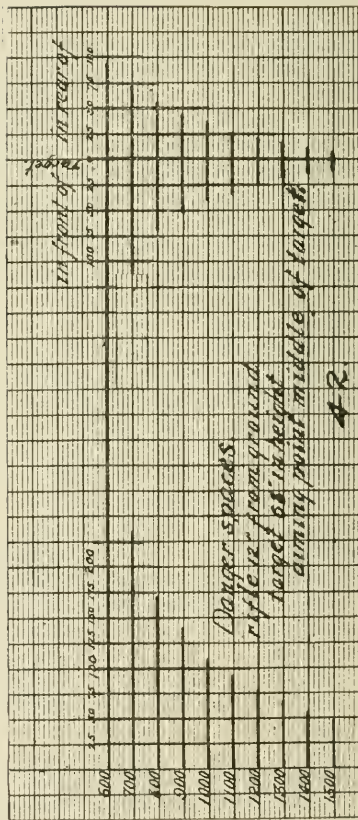 In front of in rear of
Target.
25 50 75 100 125 150 175 200
100 75 50 25 0 25 50 75 100
600
700
800
900
1000
1100
1200
1300
1400
1500
Danger spaces
rifle 12" from ground
target 68" in height
aiming point middle of target.